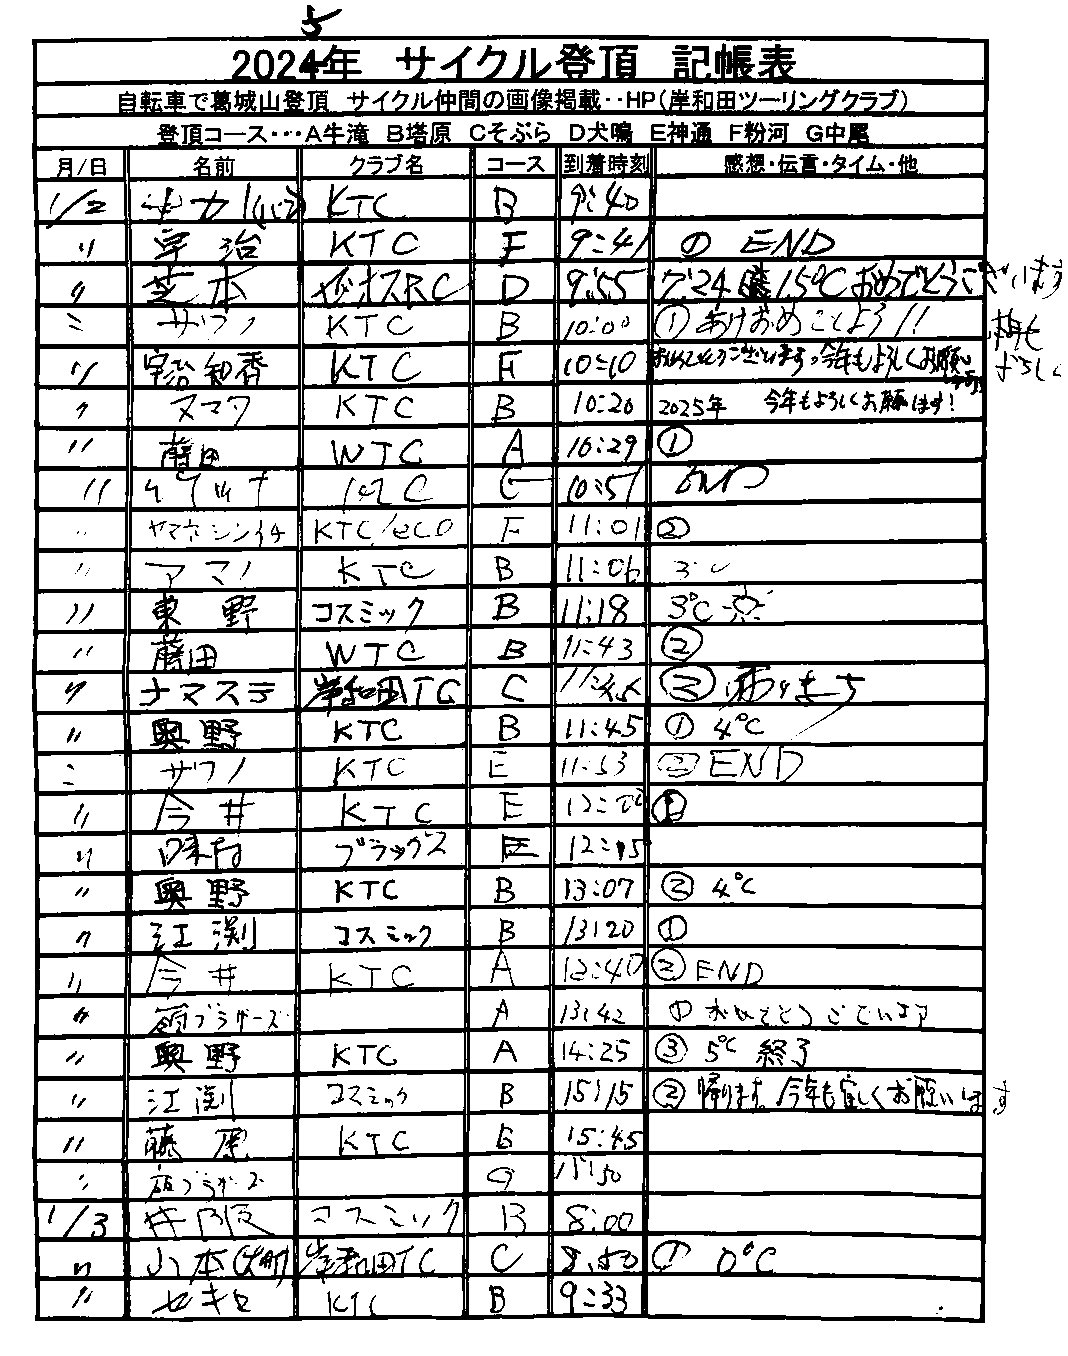 5
2024年 サイクル登頂 記帳表
自転車で葛城山登頂 サイクル仲間の画像掲載‥HP(岸和田ツーリングクラブ)
登頂コース･･･A牛滝 B塔原 Cそぶら D犬鳴 E神通 F粉河 G中尾
月/日 名前 クラブ名 コース 到着時刻 感想･伝言･タイム･他
1/2 KTC B 9:40
〃 宇治 KTC F 9:41 ① END
〃 芝本 RC D 9:55 1.5℃ おめでとうございます
〃 ザワノ KTC B 10:00 ① あけおめことよろ!!
〃 宇治知香 KTC F 10:10 今年もよろしくお願い
〃 ヌマタ KTC B 10:20 2025年 今年もよろしくお願います!
〃 藤田 WTC A 10:29 ①
〃 10:51
〃 ヤマモトシンイチ KTC/eco F 11:01 ②
〃 アマノ KTC B 11:06
〃 東野 コスミック B 11:18 3℃
〃 藤田 WTC B 11:43 ②
〃 ナマステ 岸和田TC C
〃 奥野 KTC B 11:45 ① 4℃
〃 ザワノ KTC E 11:53 ② END
〃 今井 KTC E ①
〃 E 12:15
〃 奥野 KTC B 13:07 ② 4℃
〃 江渕 コスミック B 13:20 ①
〃 今井 KTC A 12:40 ② END
〃 ブラザーズ A 13:42 ①
〃 奥野 KTC A 14:25 ③ 5℃ 終了
〃 江渕 コスミック B 15:15 ② 帰ります。今年も宜しくお願いします
〃 藤原 KTC 15:45
〃 ブラザーズ 15:50
1/3 井阪 コスミック B 8:00
〃 山本 岸和田TC C ① 0℃
〃 セキロ KTC B 9:33